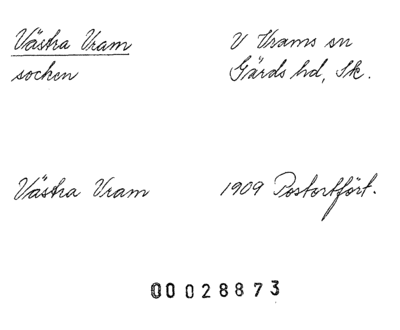 Västra Vram
socken
V Vrams sn
Gärds hd, Sk.
Västra Vram
1909 Postortfört.
00028873